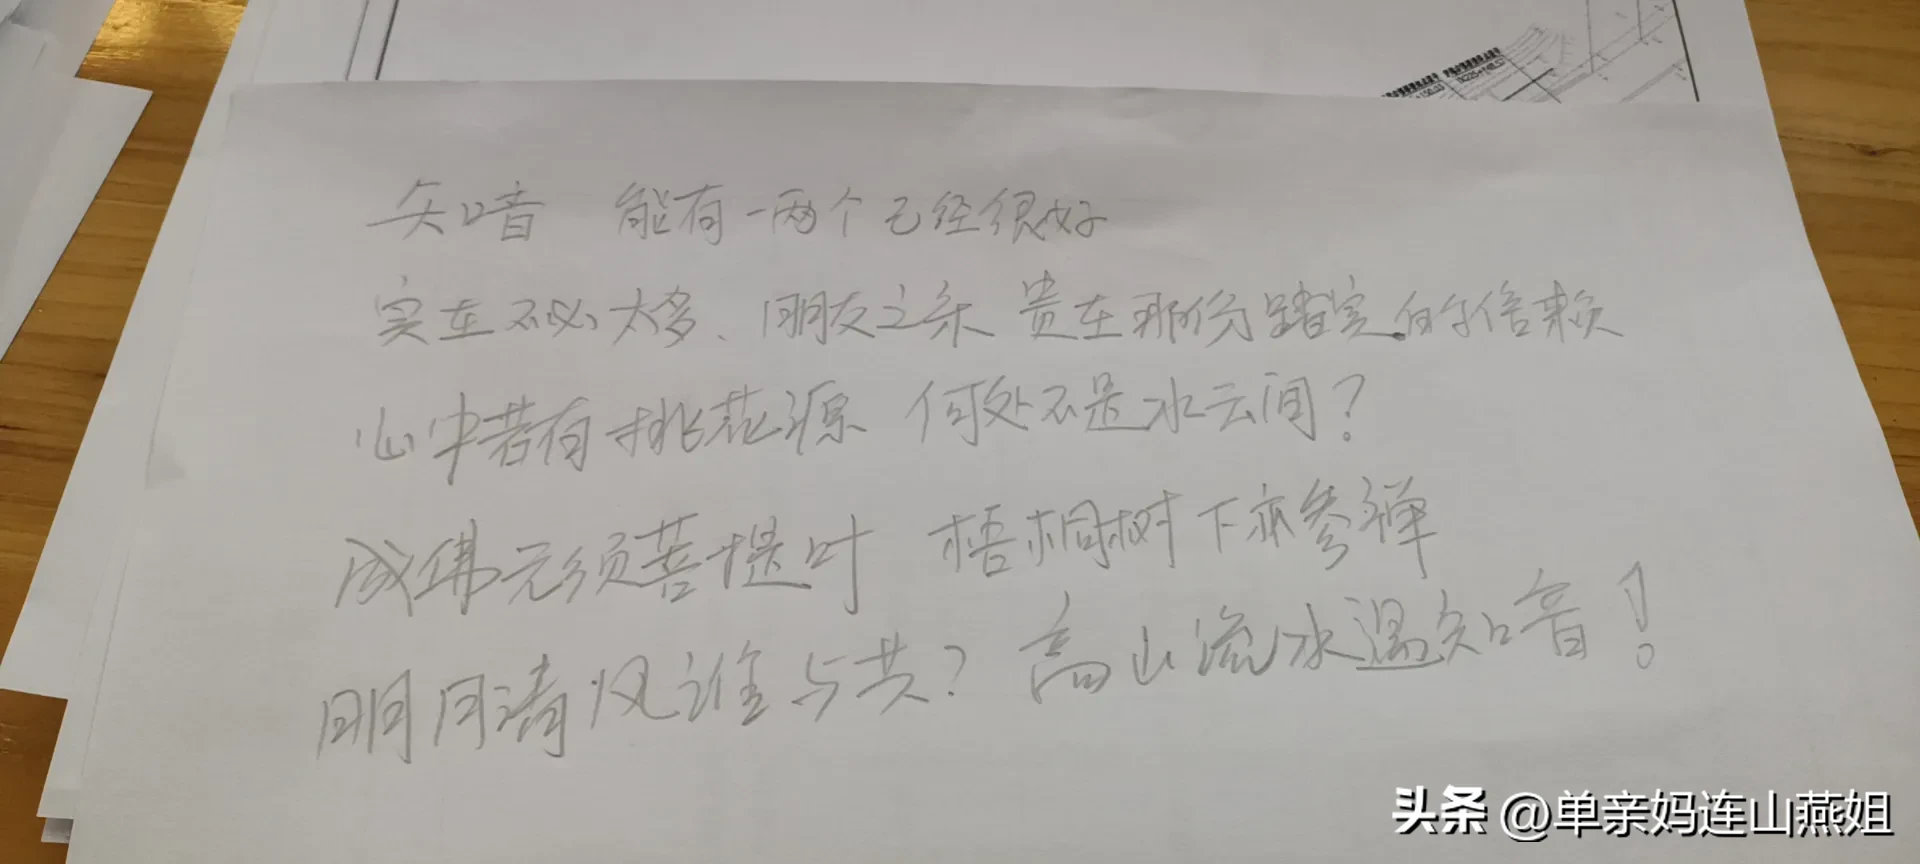 DK225+148.52
知音 能有一两个已经很好
实在不必太多、朋友之乐 贵在那份踏实的信赖
心中若有桃花源 何处不是水云间?
成佛无须菩提叶 梧桐树下亦参禅
明月清风谁与共? 高山流水遇知音!
头条 @单亲妈连山燕姐